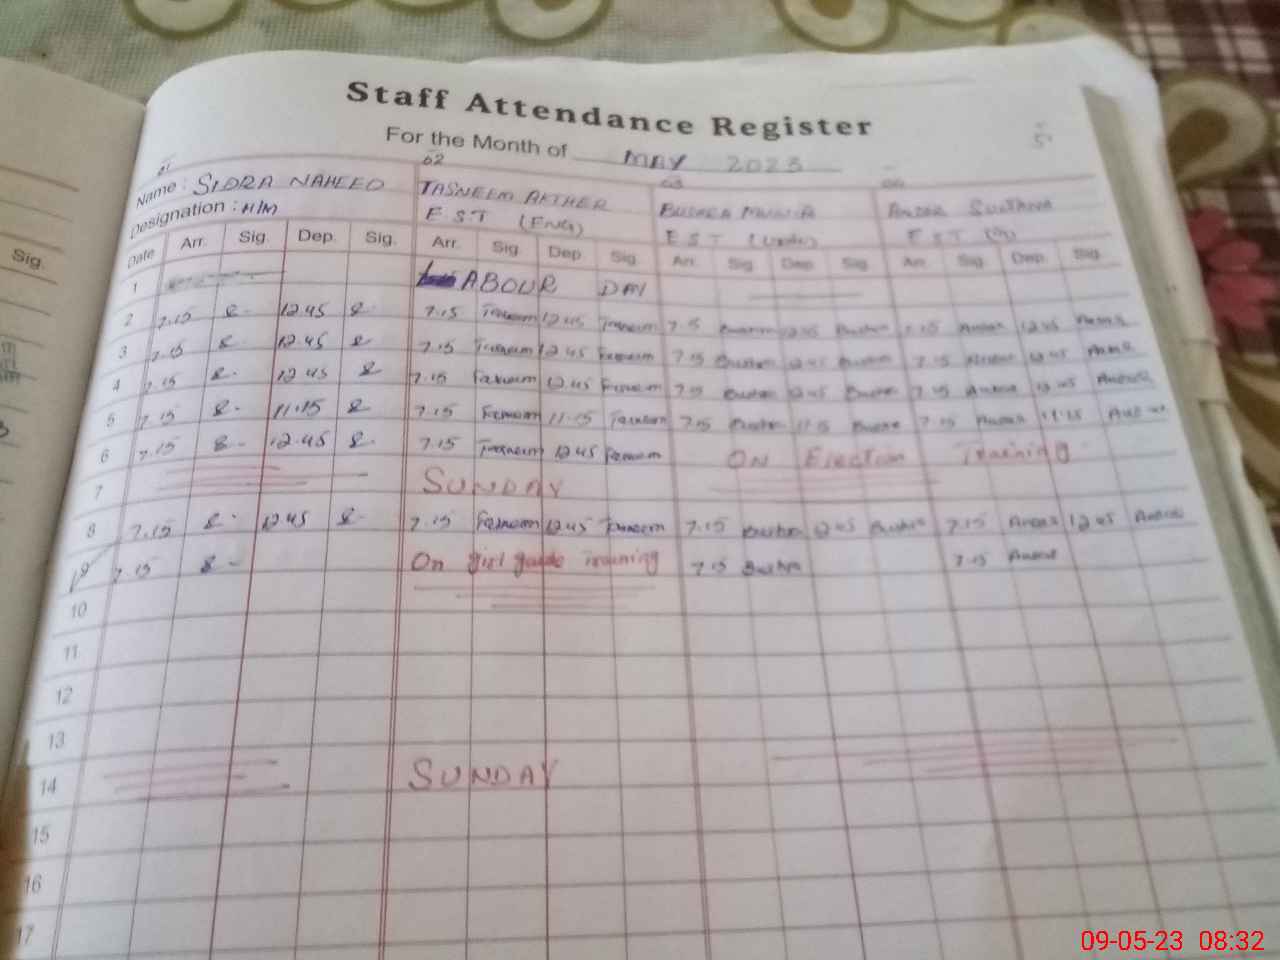 Staff Attendance Register
For the Month of MAY 2023
01 02 03
Name: SIDRA NAHEED TASNEEM AKTHER BUSHRA SULTANA
Designation: H/M EST (ENG) EST (Urdu) EST
Date Arr. Sig. Dep. Sig. Arr. Sig Dep Sig Arr. Sig Dep Sig Arr Sig. Dep. Sig.
Sig.
1 LABOUR DAY
2 7.15 &- 12.45 &- 7.15 Tasneem 12.45 Tasneem 7.15 Bushra 12.45 Bushra 7.15 12.45
3 7.15 &- 12.45 & 7.15 Tasneem 12.45 Tasneem 7.15 Bushra 12.45 Bushra 7.15 12.45
4 7.15 &- 12.45 & 7.15 Tasneem 12.45 Tasneem 7.15 Bushra 12.45 Bushra 7.15 12.45
5 7.15 &- 11.15 & 7.15 Tasneem 11.15 Tasneem 7.15 Bushra 11.15 Bushra 7.15 11.15
6 7.15 &- 12.45 &- 7.15 Tasneem 12.45 Tasneem ON Election Training
7 SUNDAY
8 7.15 &- 12.45 &- 7.15 Tasneem 12.45 Tasneem 7.15 Bushra 12.45 Bushra 7.15 12.45
7.15 &- On girl guide Training 7.15 Bushra 7.15
10
11
12
13
14 SUNDAY
15
16
17
09-05-23 08:32